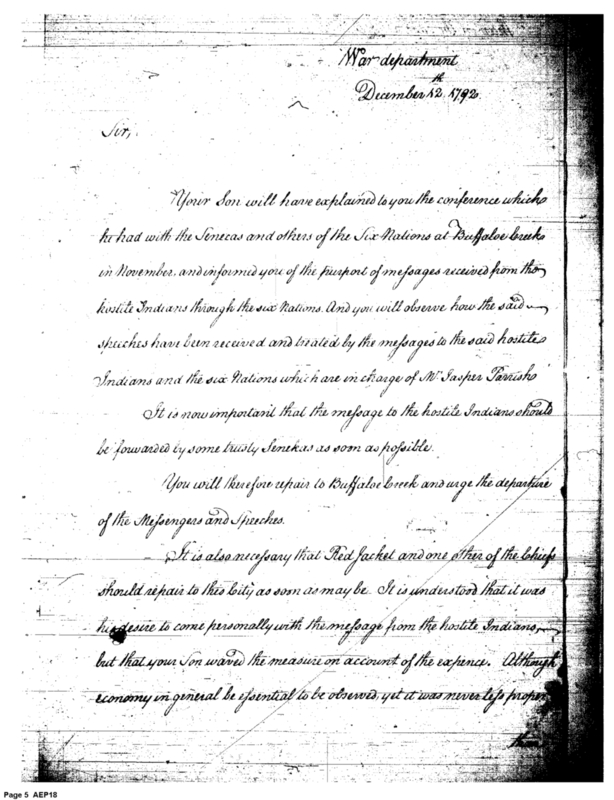 War department
December 12th 1792
Sir,
Your Son will have explained to you the conference which
he had with the Senecas and others of the Six Nations at Buffaloe Creek
in November, and informed you of the purport of messages received from the
hostile Indians through the six Nations. And you will observe how the said
speeches have been received and treated by the messages to the said hostile
Indians and the six Nations which are in charge of Mr. Jasper Parrish
It is now important that the message to the hostile Indians should
be forwarded by some trusty Senekas as soon as possible.
You will therefore repair to Buffaloe Creek and urge the departure
of the Messengers and Speeches.
It is also necessary that Red Jacket and one other of the Chiefs
should repair to this City as soon as may be. It is understood that it was
his desire to come personally with the message from the hostile Indians
but that your Son waved the measure on account of the expence. Although
economy in general be essential to be observed, yet it was never less proper
than
Page 5 AEP18